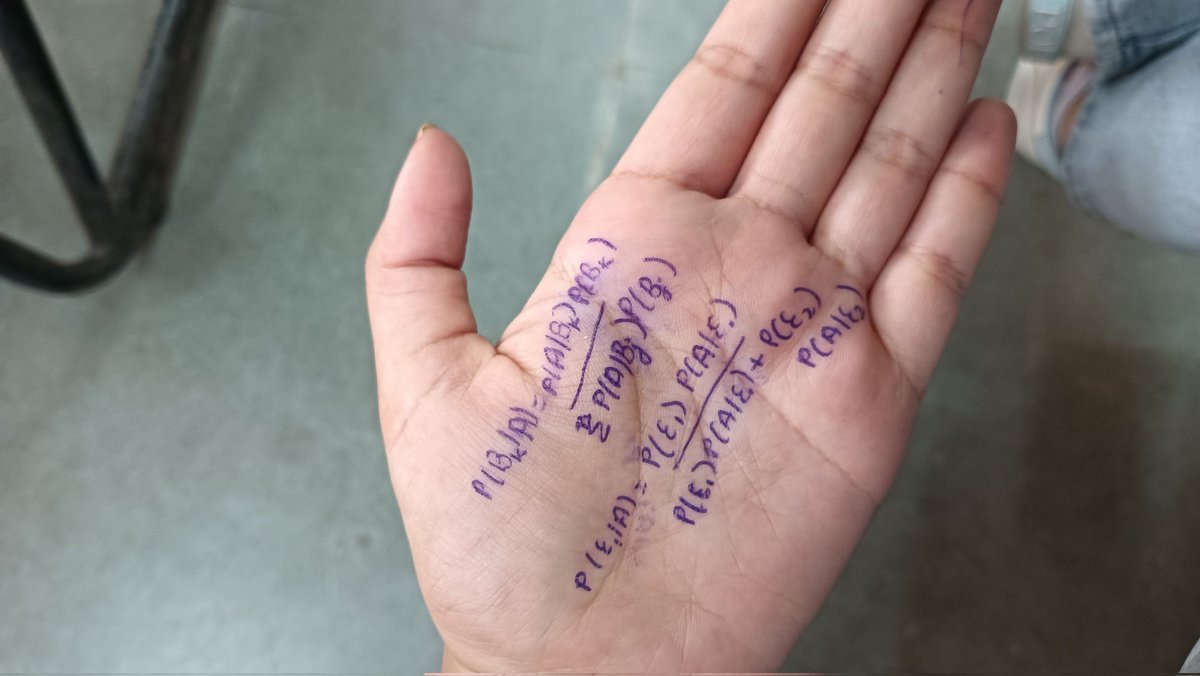 P(Bₖ|A) = P(A|Bₖ) P(Bₖ)
Σ P(A|Bⱼ) P(Bⱼ)
P(ε₁|A) = P(ε₁) P(A|ε₁)
P(ε₁) P(A|ε₁) + P(ε₂)
P(A|ε₂)